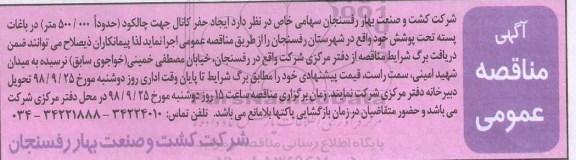 آگهی
مناقصه
عمومی
شرکت کشت و صنعت بهار رفسنجان سهامی خاص در نظر دارد ایجاد حفر کانال جهت چالکود (حدوداً ۵۰۰/۰۰۰ متر) در باغات
پسته تحت پوشش خود واقع در شهرستان رفسنجان را از طریق مناقصه عمومی اجرا نماید لذا پیمانکاران ذیصلاح می توانند ضمن
دریافت برگ شرایط مناقصه از دفتر مرکزی شرکت واقع در رفسنجان، خیابان مصطفی خمینی (خواجوی سابق) نرسیده به میدان
شهید امینی، سمت راست، قیمت پیشنهادی خود را مطابق برگ شرایط تا پایان وقت اداری روز دوشنبه مورخ ۹۸/۹/۲۵ تحویل
دبیرخانه دفتر مرکزی شرکت نمایند. زمان برگزاری مناقصه ساعت ۱۵ روز دوشنبه مورخ ۹۸/۹/۲۵ در محل دفتر مرکزی شرکت
می باشد و حضور متقاضیان در زمان بازگشایی پاکتها بلامانع می باشد. تلفن تماس: ۳۴۲۲۴۰۱۰ - ۳۴۲۲۱۸۸۸ - ۰۳۴
شرکت کشت و صنعت بهار رفسنجان
پایگاه اطلاع رسانی مناقصه